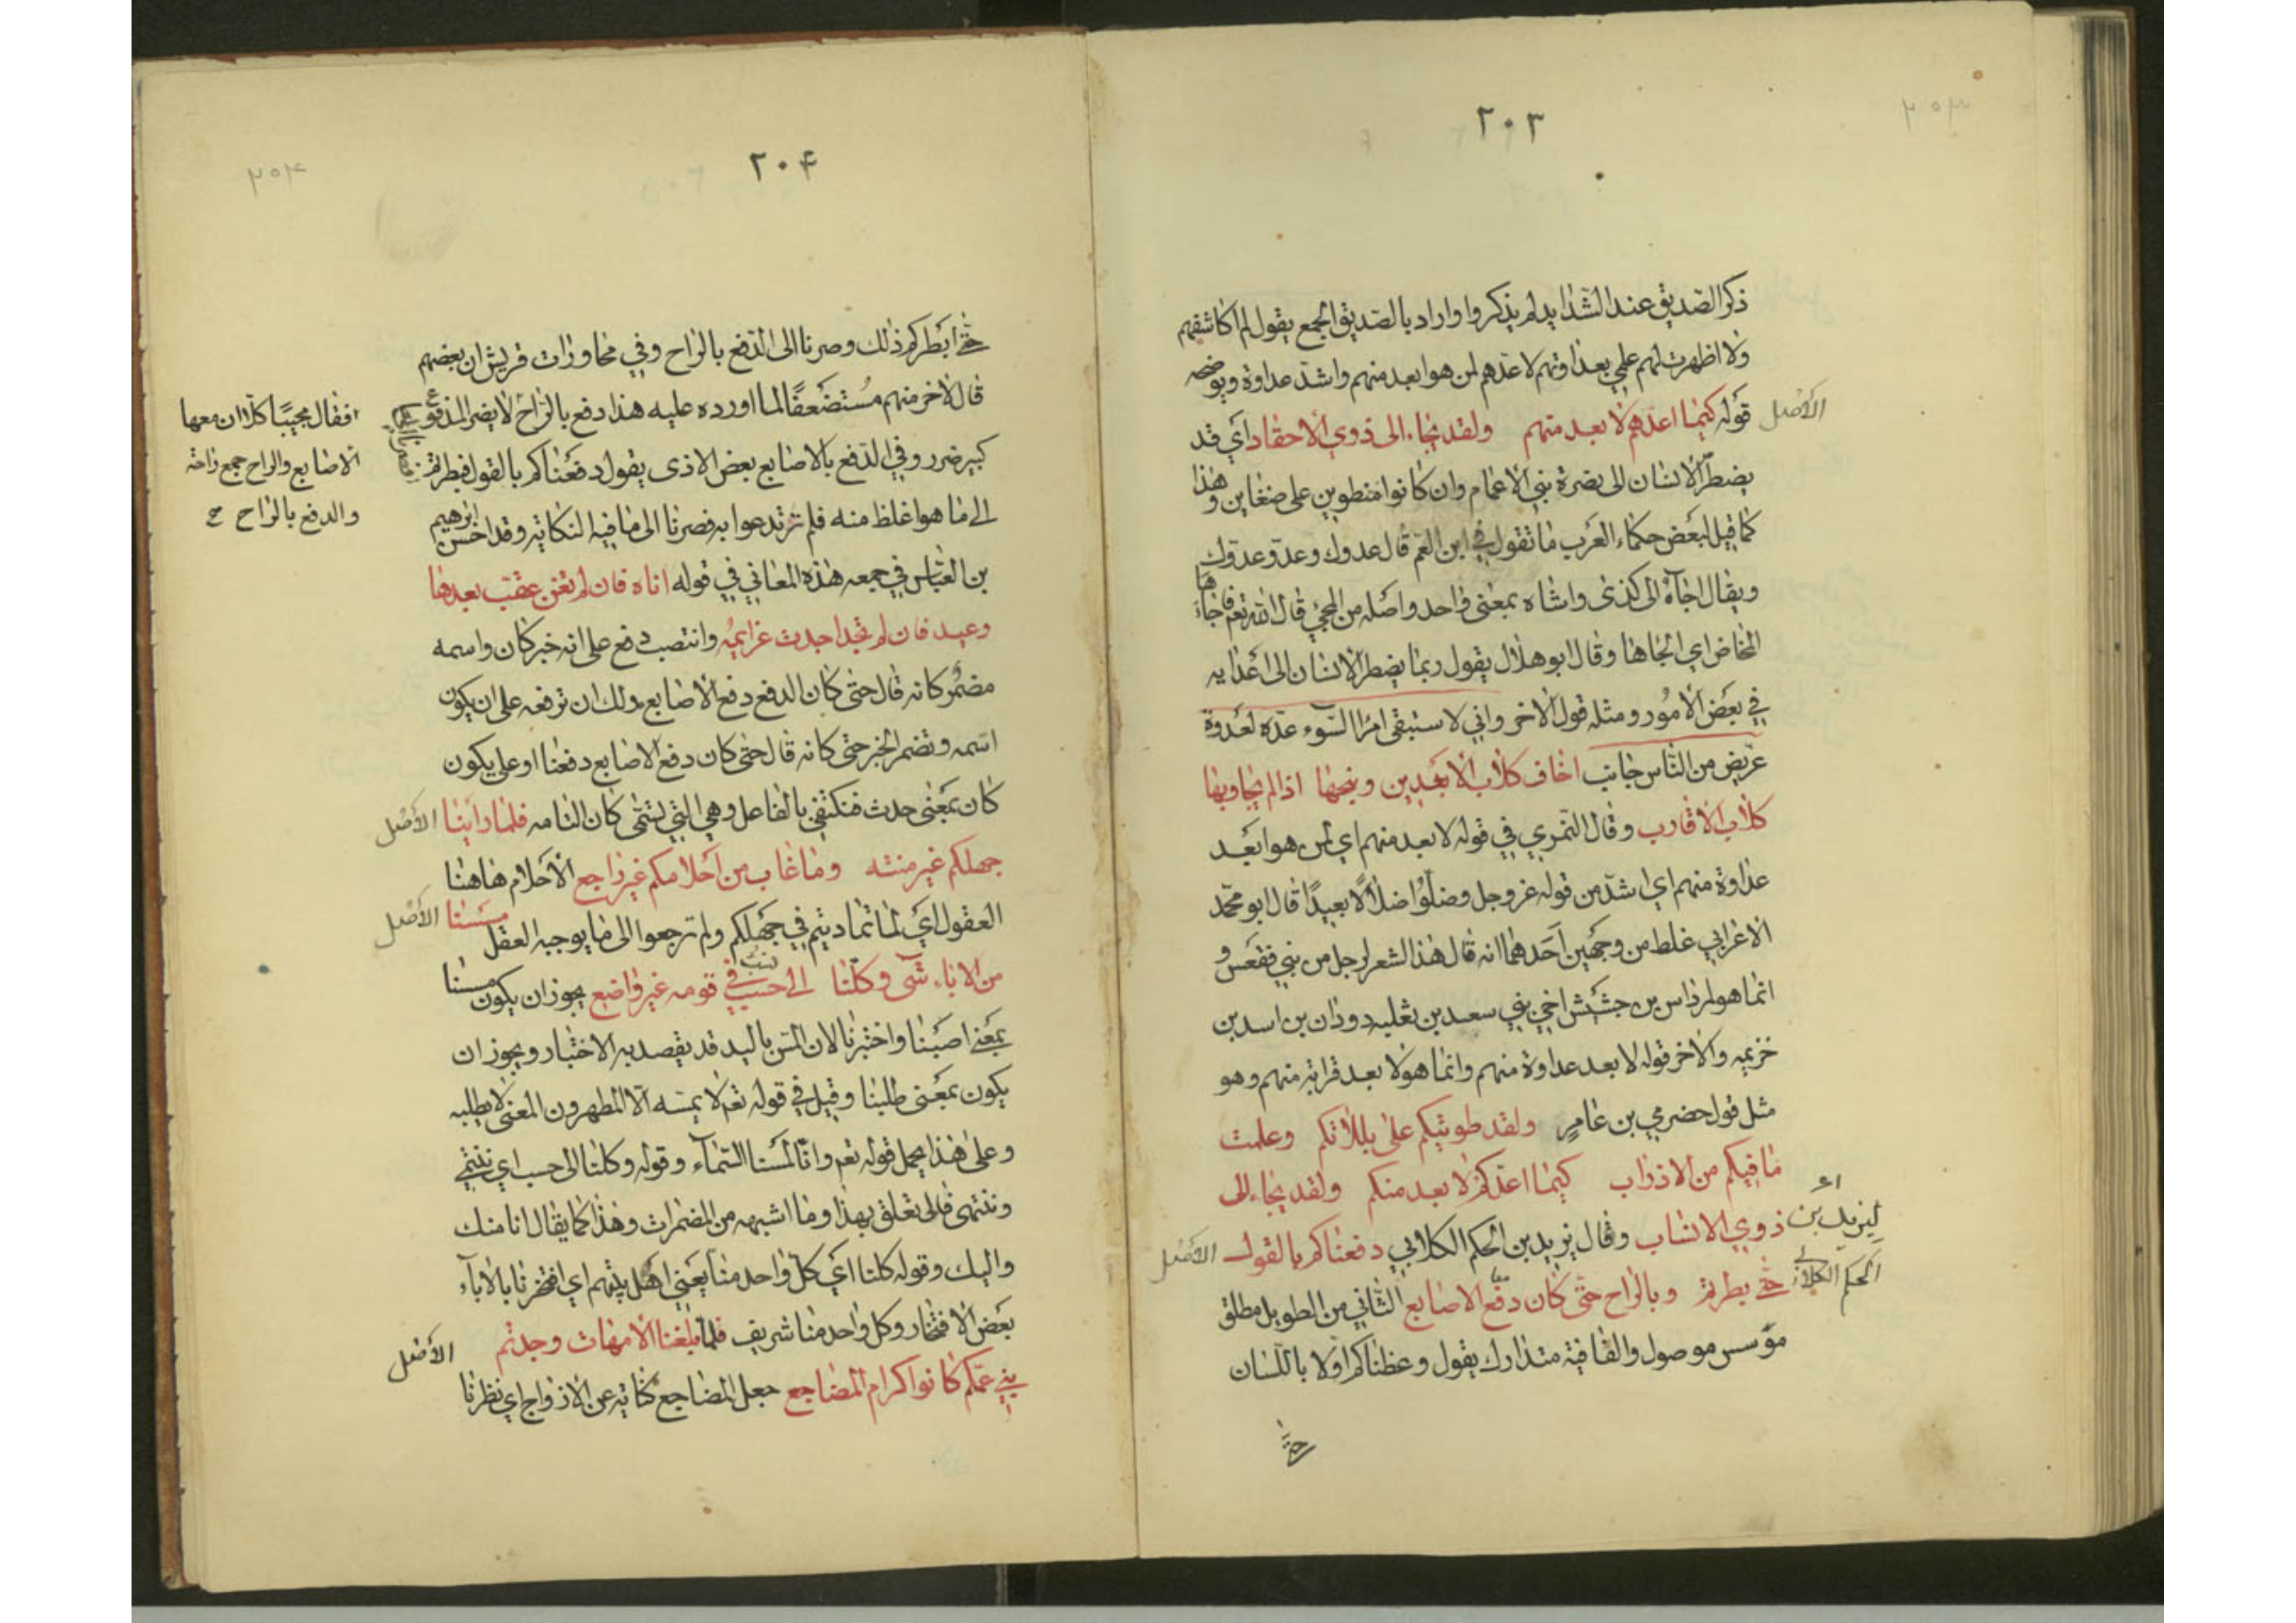 ٢٠٣
ذكر الصديق عند الشدايد لم يذكروا واراد بالصديق الجمع يقول لم اكاشفهم
ولا اظهرت لهم علمي بعداوتهم لاعدهم لمن هو ابعد منهم واشد عداوة ويوضحه
الأصل
قوله كيما اعدهم لا بعد منهم ولقد يجاء الى ذوي الأحقاد اي قد
يضطر الانسان الى نصرة بني الاعمام وان كانوا منطوين على ضغاين وهذا
كما قيل لبعض حكماء العرب ما تقول في ابن العم قال عدوك وعدو عدوك
ويقال اجاه الى كذى واشاه بمعنى واحد واصله من المجئ قال الله تعم فاجاءها
المخاض اي الجاها وقال ابو هلال يقول ربما يضطر الانسان الى اعدايه
في بعض الامور ومثله قول الاخر واني لاستبقى امرا السوء عده لعدوة
عريض من الناس جانب اخاف كلاب الابعدين ونبحها اذا لم يجاوبها
كلاب الاقارب وقال النمري في قوله لابعد منهم اي لمن هو ابعد
عداوة منهم اي اشد من قوله عز وجل وضلوا ضلالا بعيدا قال ابو محمد
الاعرابي غلط من وجهين احدهما انه قال هذا الشعر لرجل من بني فقعس و
انما هو لمرداس بن جشيش اخي بني سعد بن ثعلبه دودان بن اسد بن
خزيمه والاخر قوله لابعد عداوة منهم وانما هو لا بعد قرابة منهم وهو
مثل قول حضرمي بن عامر ولقد طويتكم على بللاتكم وعلمت
ما فيكم من الاذراب كيما اعدكم لا بعد منكم ولقد يجاء الى
ذوي الانساب وقال يزيد بن الحكم الكلابي دفعناكم بالقول
الأصل
ليزيد بن
الحكم الكلابي
حتى بطرتم وبالراح حتى كان دفع الاصابع الثاني من الطويل مطلق
مؤسس موصول والقافية متدارك يقول وعظناكم اولا باللسان
حتى
٢٠۴
حتى ابطركم ذلك وصرنا الى الدفع بالراح وفي محاورات قريش ان بعضهم
قال لاخر منهم مستضعفا لما اورده عليه هذا دفع بالراح لا يضر المدفوع
كبير ضرر وفي الدفع بالاصابع بعض الاذى يقول دفعناكم بالقول فبطرتم
الى ما هو اغلظ منه فلم ترتدعوا به فصرنا الى ما فيه النكاية وقد احسن ابرهيم
فقال مجيبا كلا ان معها
الاصابع والراح جمع راحة
والدفع بالراح صح
بن العباس في جمعه هذه المعاني في قوله اناه فان لم تغن عقب بعدها
وعيد فان لم تجد اجدت عزايمه وانتصب دفع على انه خبر كان واسمه
مضمر كانه قال حتى كان الدفع دفع الاصابع ولك ان ترفعه على ان يكون
اسمه وتضمر الخبر حتى كانه قال حتى كان دفع الاصابع دفعنا او على يكون
كان بمعنى حدث فتكتفي بالفاعل وهي التي تسمى كان التامه فلما راينا
الأصل
جهلكم غير منته وما غاب من احلامكم غير راجع الاحلام هاهنا
العقول اي لما تماديتم في جهلكم ولم ترجعوا الى ما يوجبه العقل مسسنا
الأصل
من الاباء شى وكلنا الى حسب في قومه غير واضع يجوز ان يكون مسسنا
بمعنى اصبنا واختبرنا لان المس باليد قد يقصد به الاختبار ويجوز ان
يكون بمعنى طلبنا وقيل في قوله تعم لا يمسه الا المطهرون المعنى لا يطلبه
وعلى هذا يحمل قوله تعم وانا لمسنا السماء وقوله وكلنا الى حسب اي ننتمي
وننتهى فالى تعلق بهذا وما اشبهه من المضمرات وهذا كما يقال انا منك
واليك وقوله كلنا اي كل واحد منا يعني اهل بيتهم اي افتخرنا بالاباء
بعض الافتخار وكل واحد منا شريف فلما بلغنا الامهات وجدتم
الأصل
بني عمكم كانوا كرام المضاجع جعل المضاجع كناية عن الازواج اي نظرنا